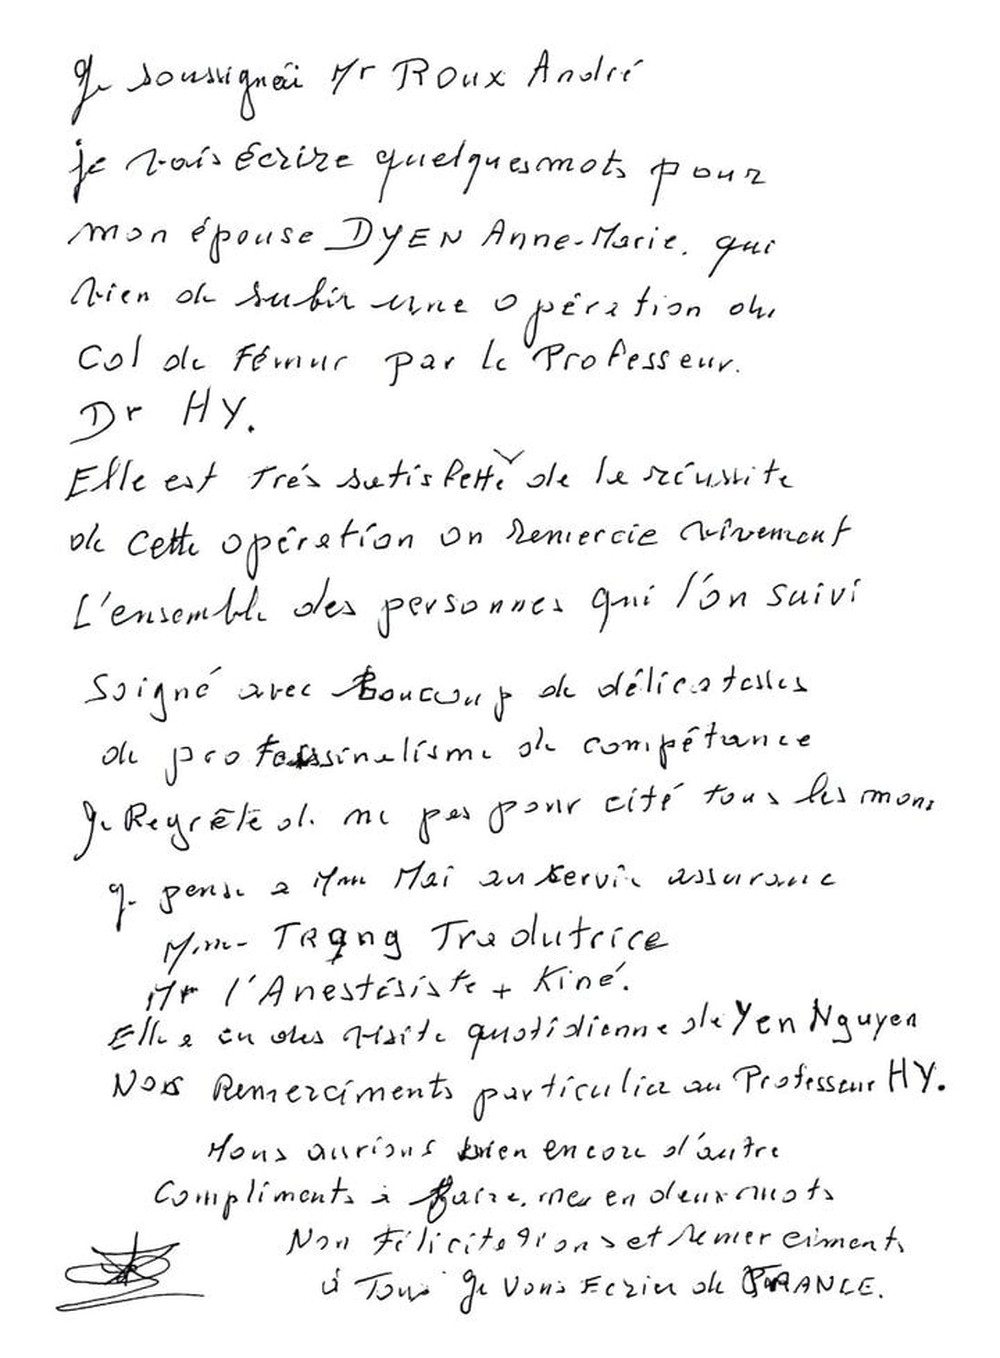 Je soussignéi Mr Roux André
je vais écrire quelques mots pour
mon épouse DYEN Anne-Marie. qui
vien de subir une opération du
Col de Fémur par le Professeur.
Dr HY.
Elle est Trés satisfette de la réussite
de cette opération on remercie vivement
L'ensemble des personnes qui l'on suivi
Soigné avec Boucoup de délicatesses
de professinalisme de compétance
Je Regrête de ne pas pour cité tous les mons
Je pense a Mme Mai au servic assurance
Mme Trang Tradutrice
Mr l'Anestésiste + Kiné.
Elle a eu des visite quotidienne de Yen Nguyen
Nos Remerciments particulier au Professeur HY.
Nous aurions bien encore d'autre
Compliments à faire, mes en deux mots
Non Félicitations et remerciments
à Tous Je Vous Ecrier de FRANCE.